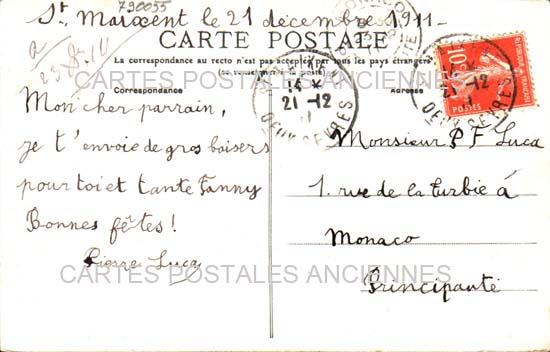 790055
St. Maixent le 21 décembre 1911-
CARTE POSTALE
La correspondance au recto n'est pas acceptée par tous les pays étrangers
Correspondance
Adresse
Mon cher parrain,
je t'envoie de gros baisers
pour toi et tante Fanny
Bonnes fêtes!
Pierre Luca
21-12
DEUX-SEVRES
10
POSTES
21-12
Monsieur P F Luca
1. rue de la Turbie à
Monaco
Principauté
CARTES POSTALES ANCIENNES